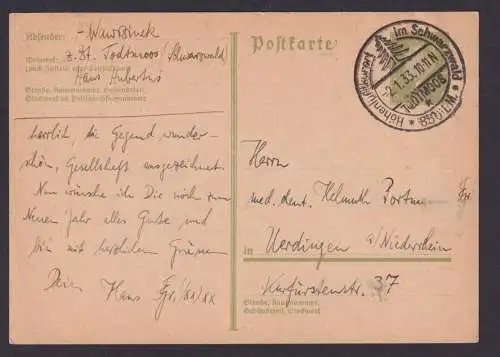 Absender:
z. Zt. Todtmoos (Schwarzwald)
Wohnort,
Haus Hubertus
Straße, Hausnummer,
Postkarte
Höhenluftkurort im Schwarzwald
-2.1.33.10-11 N
TODTMOOS
* 850 ü. M. *
herrlich, die Gegend wunder-
schön, Gesellschaft ausgezeichnet.
Nun wünsche ich Dir noch zum
Neuen Jahr alles Gute und
bin mit herzlichen Grüssen
Dein Hans Fr. (xx) xx
Herrn
med. dent. Helmuth Portmann
in Uerdingen a/Niederrhein
Kurfürstenstr. 37
Straße, Hausnummer,
Gebäudeteil, Stockwerk